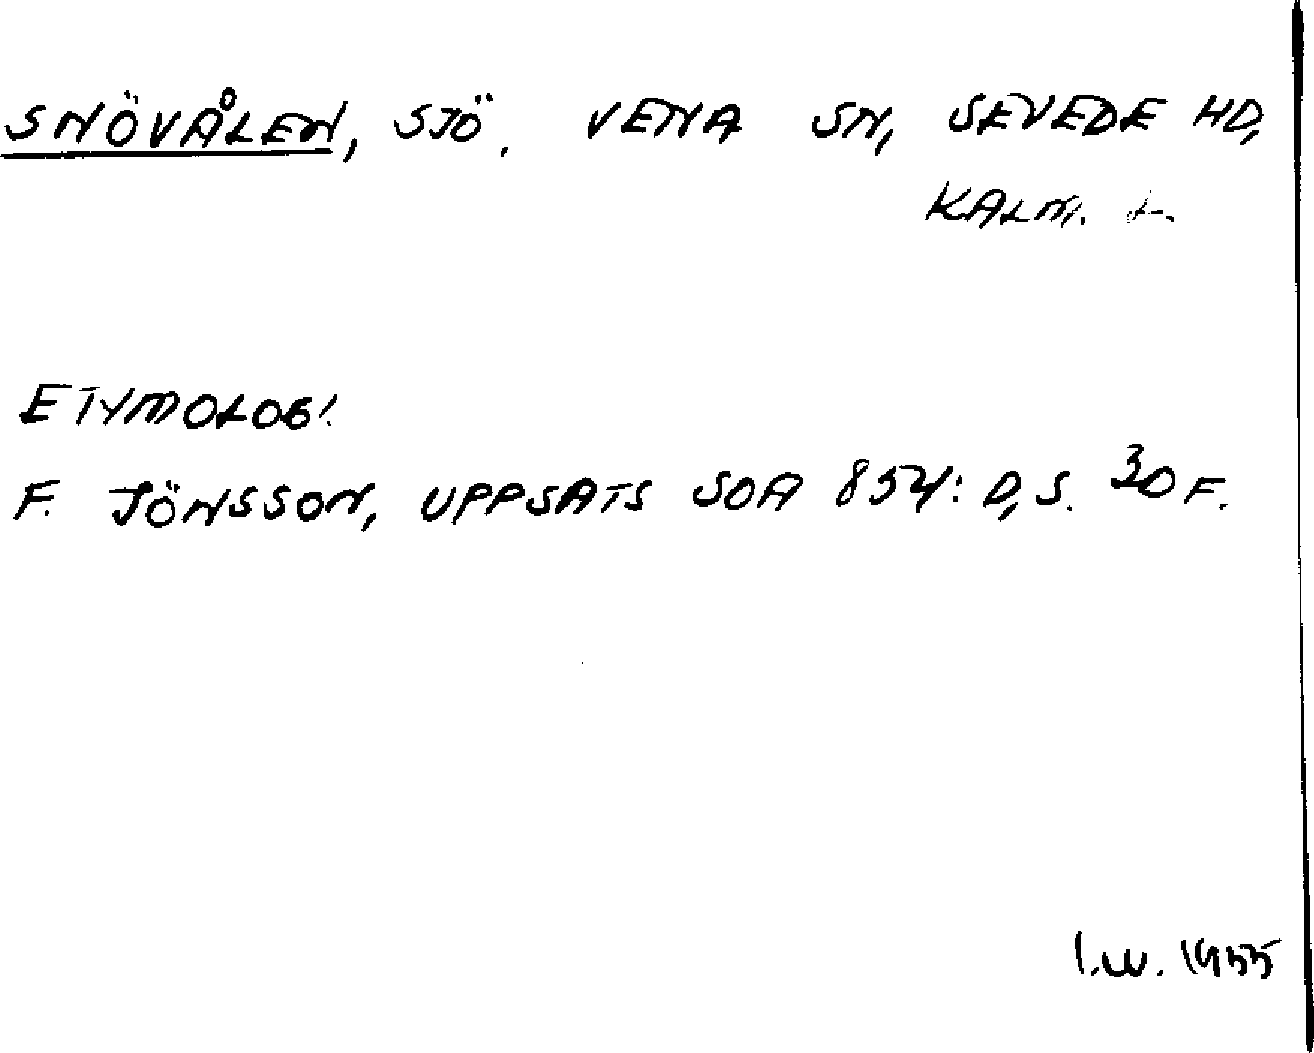 SNÖVÅLEN, SJÖ. VENA SN, SEVEDE HD,
KALM. L.
ETYMOLOGI.
F. JÖNSSON, UPPSATS SOA 854: D, S. 30 F.
I.W. 1955